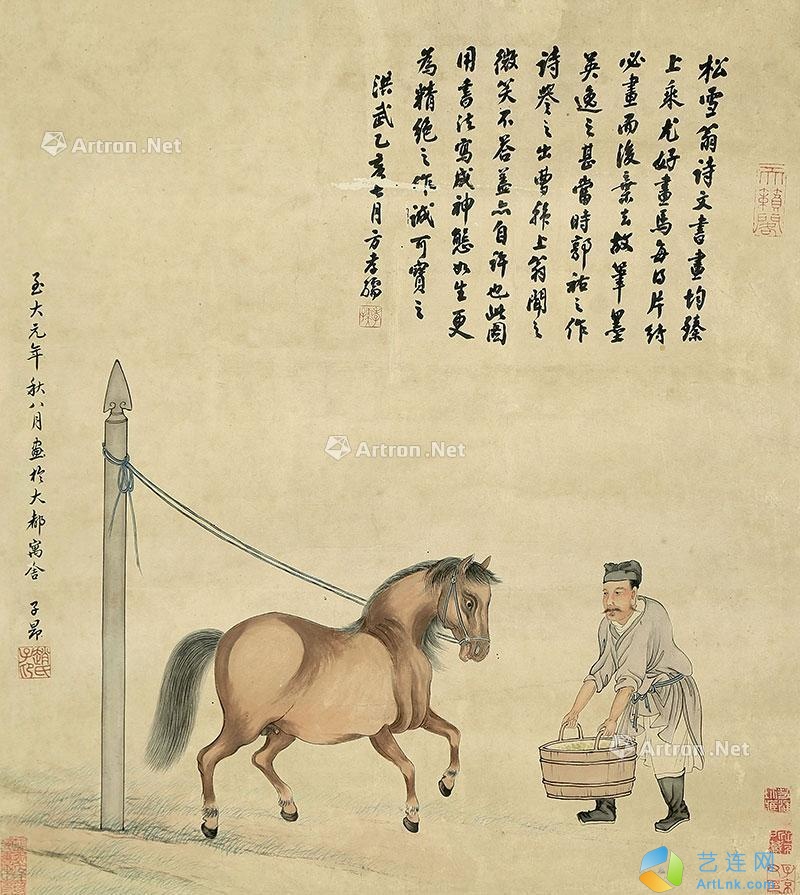 松雪翁诗文書畫均臻
上乘尤好畫馬每得片紙
必畫而後棄去故筆墨
英逸之甚當時郭祐之作
詩譽之出曹韓上翁聞之
微笑不答蓋亦自許也此圖
用書法寫成神態如生更
為精絕之作誠可寶之
洪武乙亥七月方孝孺
天籟閣
至大元年秋八月畫於大都寓舍 子昂
趙氏子印
Artron.Net
Artron.Net
Artron.Net
艺连网
ArtLnk.com